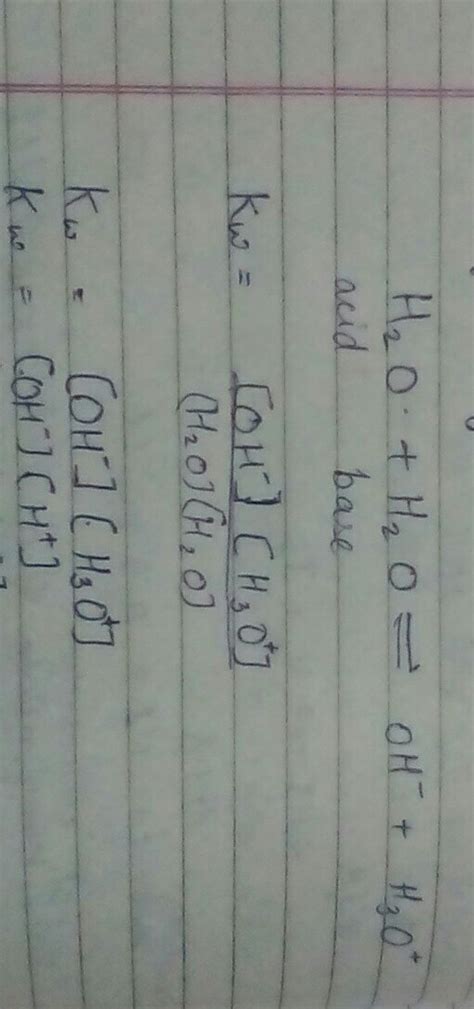 H₂O· + H₂O ⇌ OH⁻ + H₃O⁺
acid base
Kw = [OH⁻] [H₃O⁺]
[H₂O] [H₂O]
Kw = [OH⁻] [H₃O⁺]
Kw = [OH⁻] [H⁺]